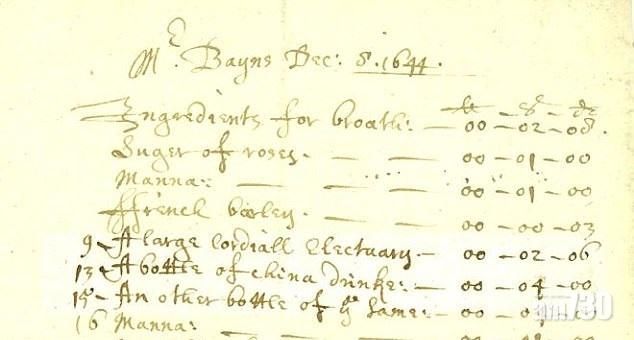 Mr. Bayns Dec: 8. 1644.
li s d
Ingredients for broath: — 00 — 02 — 08.
Suger of roses. — — — 00 — 01 — 00
Manna: — — — 00 — 01 — 00
ffrench barley. — — 00 — 00 — 03
9 — A large Cordiall Electuary — 00 — 02 — 06
13 — A bottle of China drinke: — 00 — 04 — 00
15 — An other bottle of ye same: — 00 — 04
16 Manna:
am730